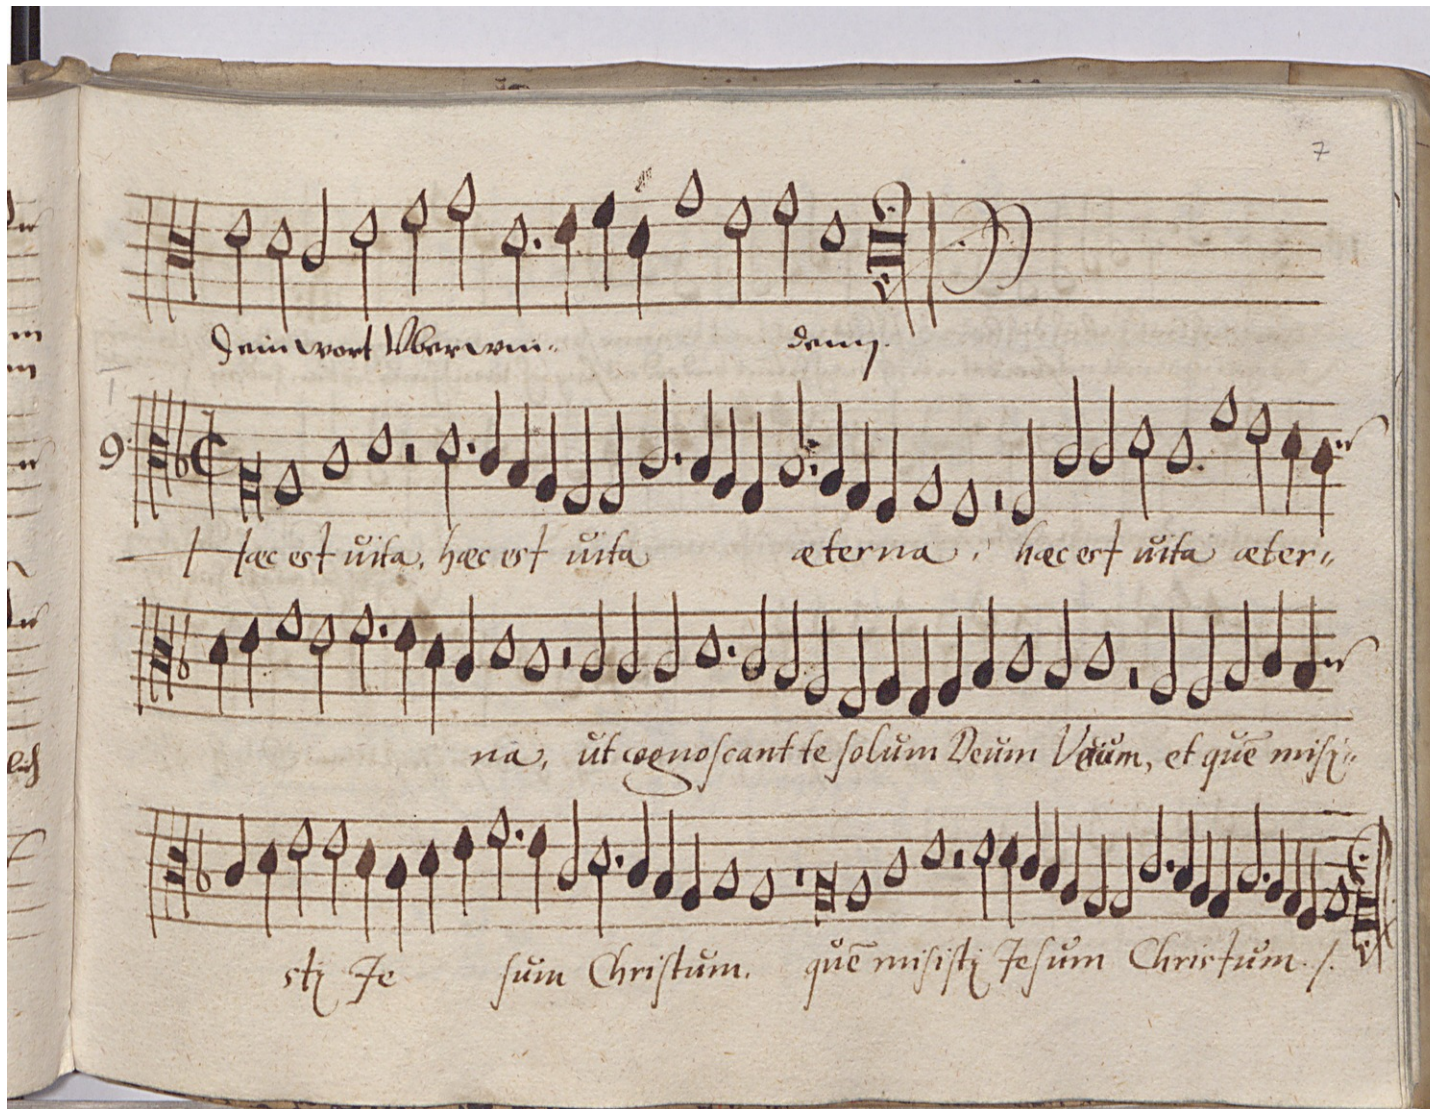 7
dein wort Uberwin- denn.
9.
Hæc est vita, hæc est vita æterna, hæc est vita æter-
na, ut cognoscant te solum Deum Verum, et quē misi-
sti Je sum Christum. quē misisti Jesum Christum.